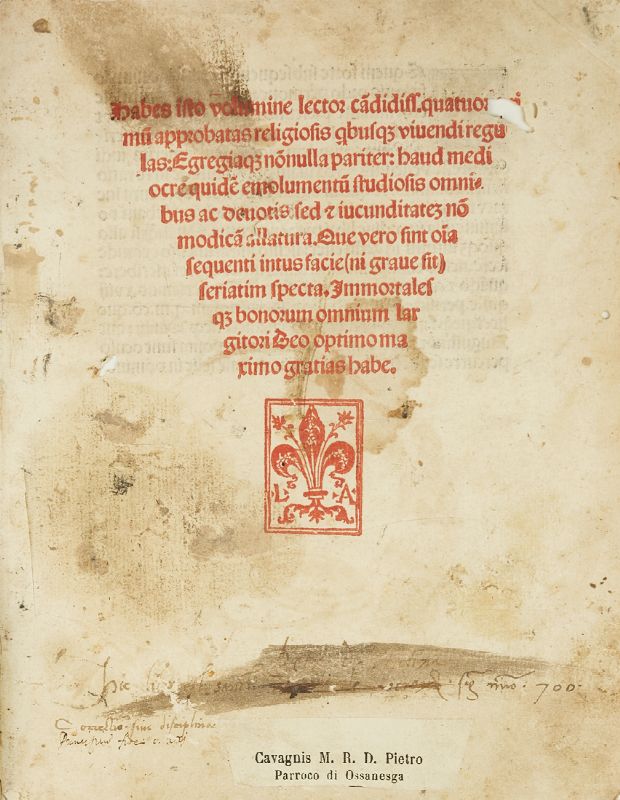 Habes isto volumine lector cãdidiss. quatuor
mũ approbatas religiosis q̃busqꝫ viuendi regu
las: Egregiaqꝫ nõnulla pariter: haud medi
ocre quidẽ emolumentũ studiosis omni-
bus ac deuotis sed ⁊ iucunditateꝫ nõ
modicã allatura. Que vero sint oĩa
sequenti intus facie (ni graue sit)
seriatim specta. Immortales
qꝫ bonorum omnium lar
gitori Deo optimo ma
ximo gratias habe.
L A
700
Cavagnis M. R. D. Pietro
Parroco di Ossanesga